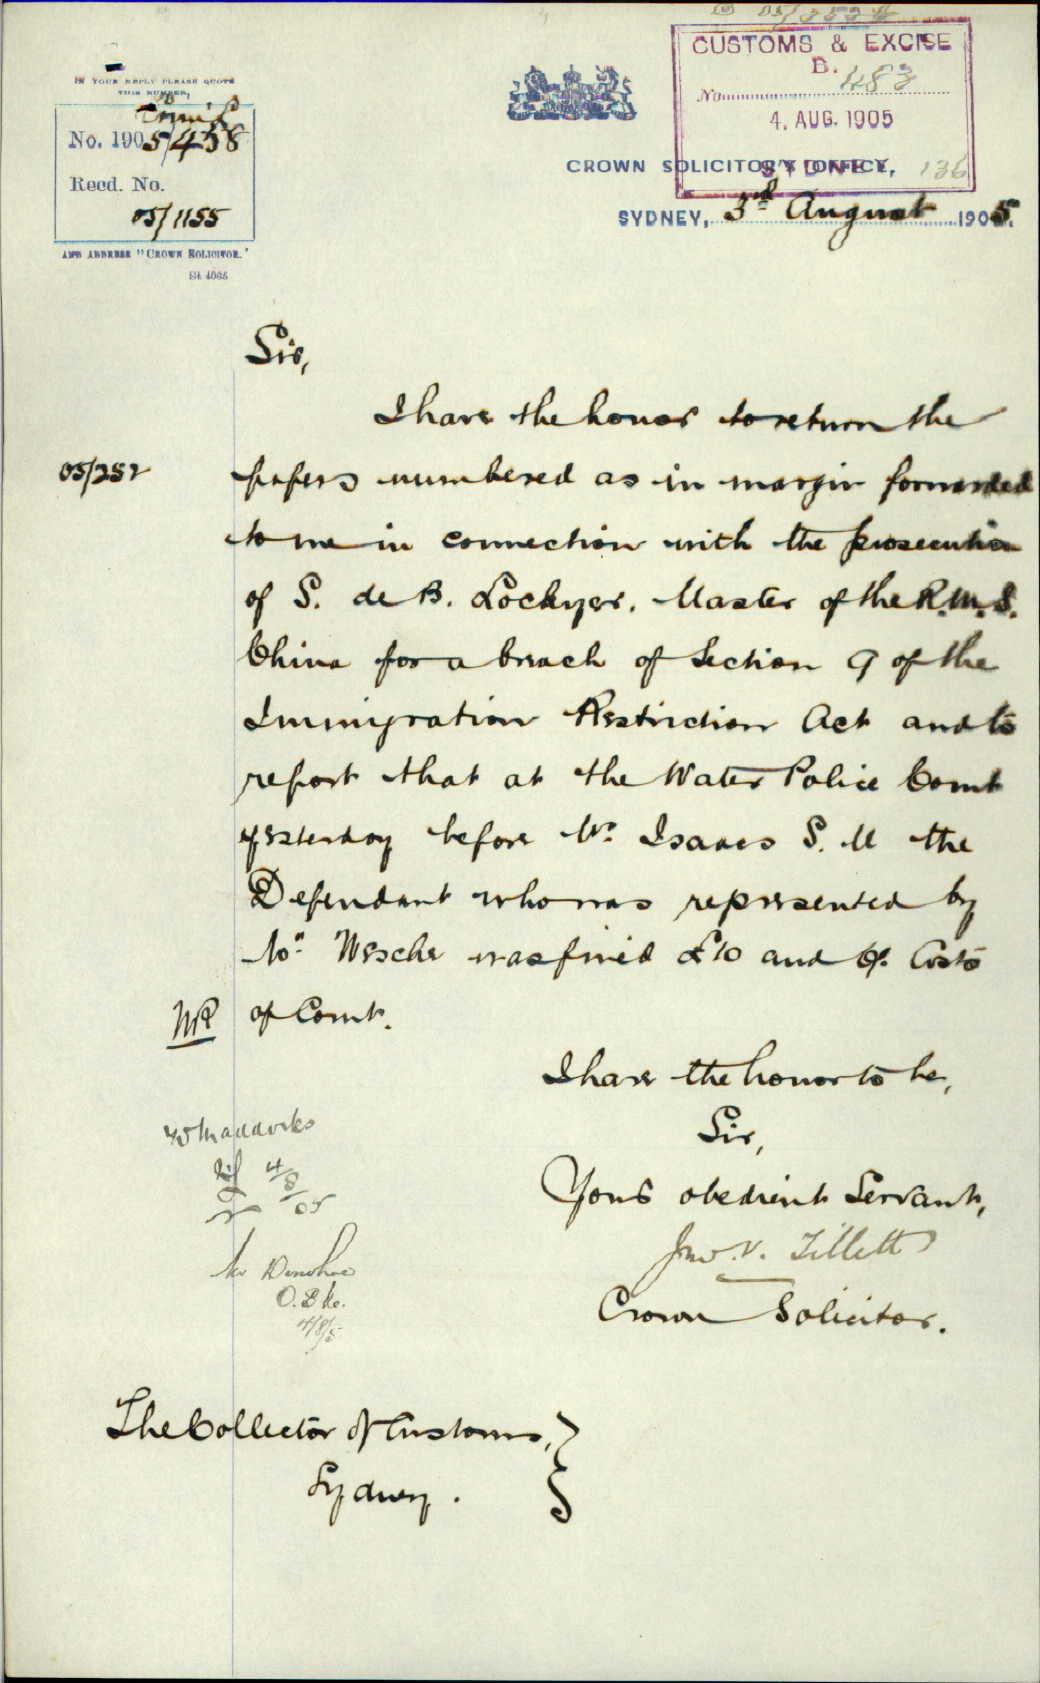 IN YOUR REPLY PLEASE QUOTE
THIS NUMBER,
No. 1905/458
Recd. No.
05/1155
AND ADDRESS "CROWN SOLICITOR."
CUSTOMS & EXCISE
B.
No 483
4. AUG. 1905
SYDNEY
136
CROWN SOLICITOR'S OFFICE,
SYDNEY, 3rd August 1905.
Sir,
I have the honor to return the
05/252 papers numbered as in margin forwarded
to me in connection with the prosecution
of S. de B. Lockyer, Master of the R.M.S.
China for a breach of Section 9 of the
Immigration Restriction Act and to
report that at the Water Police Court
yesterday before Mr. Isaacs S. M the
Defendant who was represented by
Mr. Wesche was fined £10 and 6/. Costs
of Court.
I have the honor to be,
Sir,
Your obedient Servant,
Jno. V. Tillett
Crown Solicitor.
Maddocks
4/8/05
Mr Donohoe
4/8/5
The Collector of Customs,
Sydney.